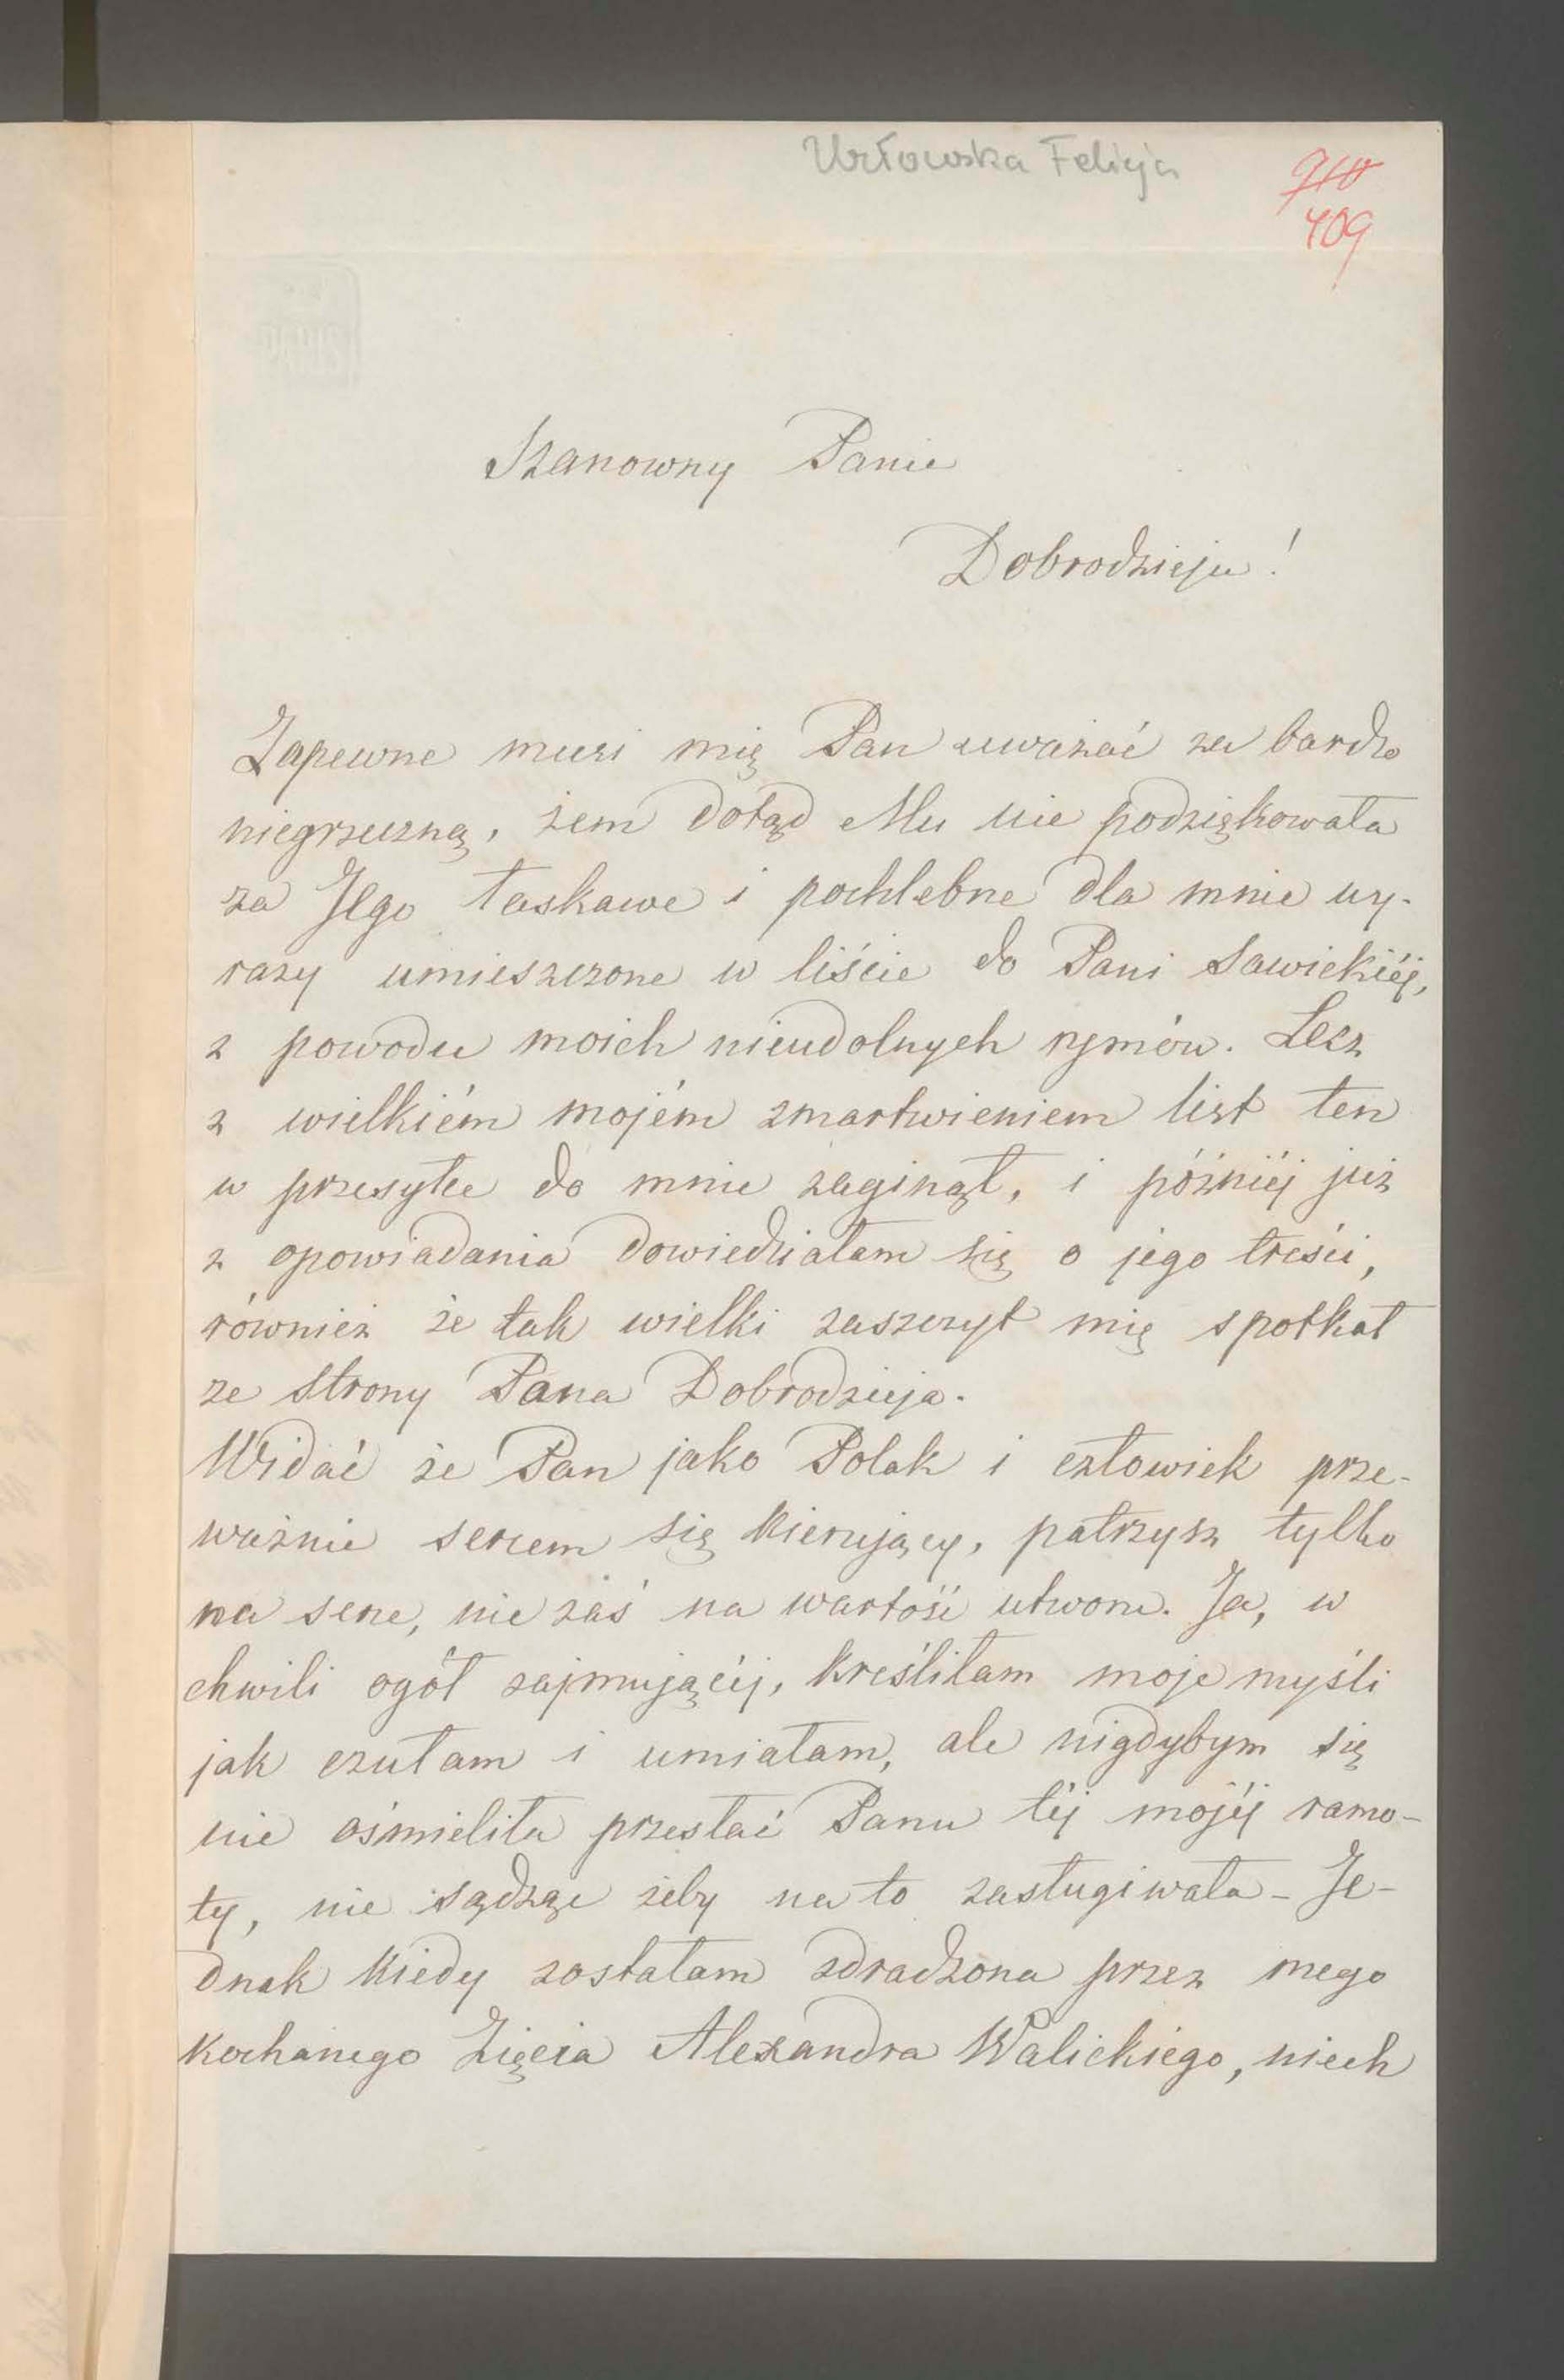 Urłowska Felicja
910
409
Szanowny Panie
Dobrodzieju!
Zapewne musi mię Pan uważać za bardzo
niegrzeczną, żem dotąd Mu nie podziękowała
za Jego łaskawe i pochlebne dla mnie wy-
razy umieszczone w liście do Pani Sawickiéj,
z powodu moich nieudolnych rymów. Lecz
z wielkiém mojém zmartwieniem list ten
w przesyłce do mnie zaginął, i późniéj już
z opowiadania dowiedziałam się o jego treści,
również że tak wielki zaszczyt mię spotkał
ze strony Pana Dobrodzieja.
Widać że Pan jako Polak i człowiek prze-
ważnie sercem się kierujący, patrzysz tylko
na serce, nie zaś na wartość utworu. Ja, w
chwili ogół zajmującéj, kreśliłam moje myśli
jak czułam i umiałam, ale nigdybym się
nie ośmieliła przesłać Panu téj mojéj ramo-
ty, nie sądząc żeby na to zasługiwała - Je-
dnak kiedy zostałam zdradzona przez mego
kochanego Zięcia Alexandra Walickiego, niech